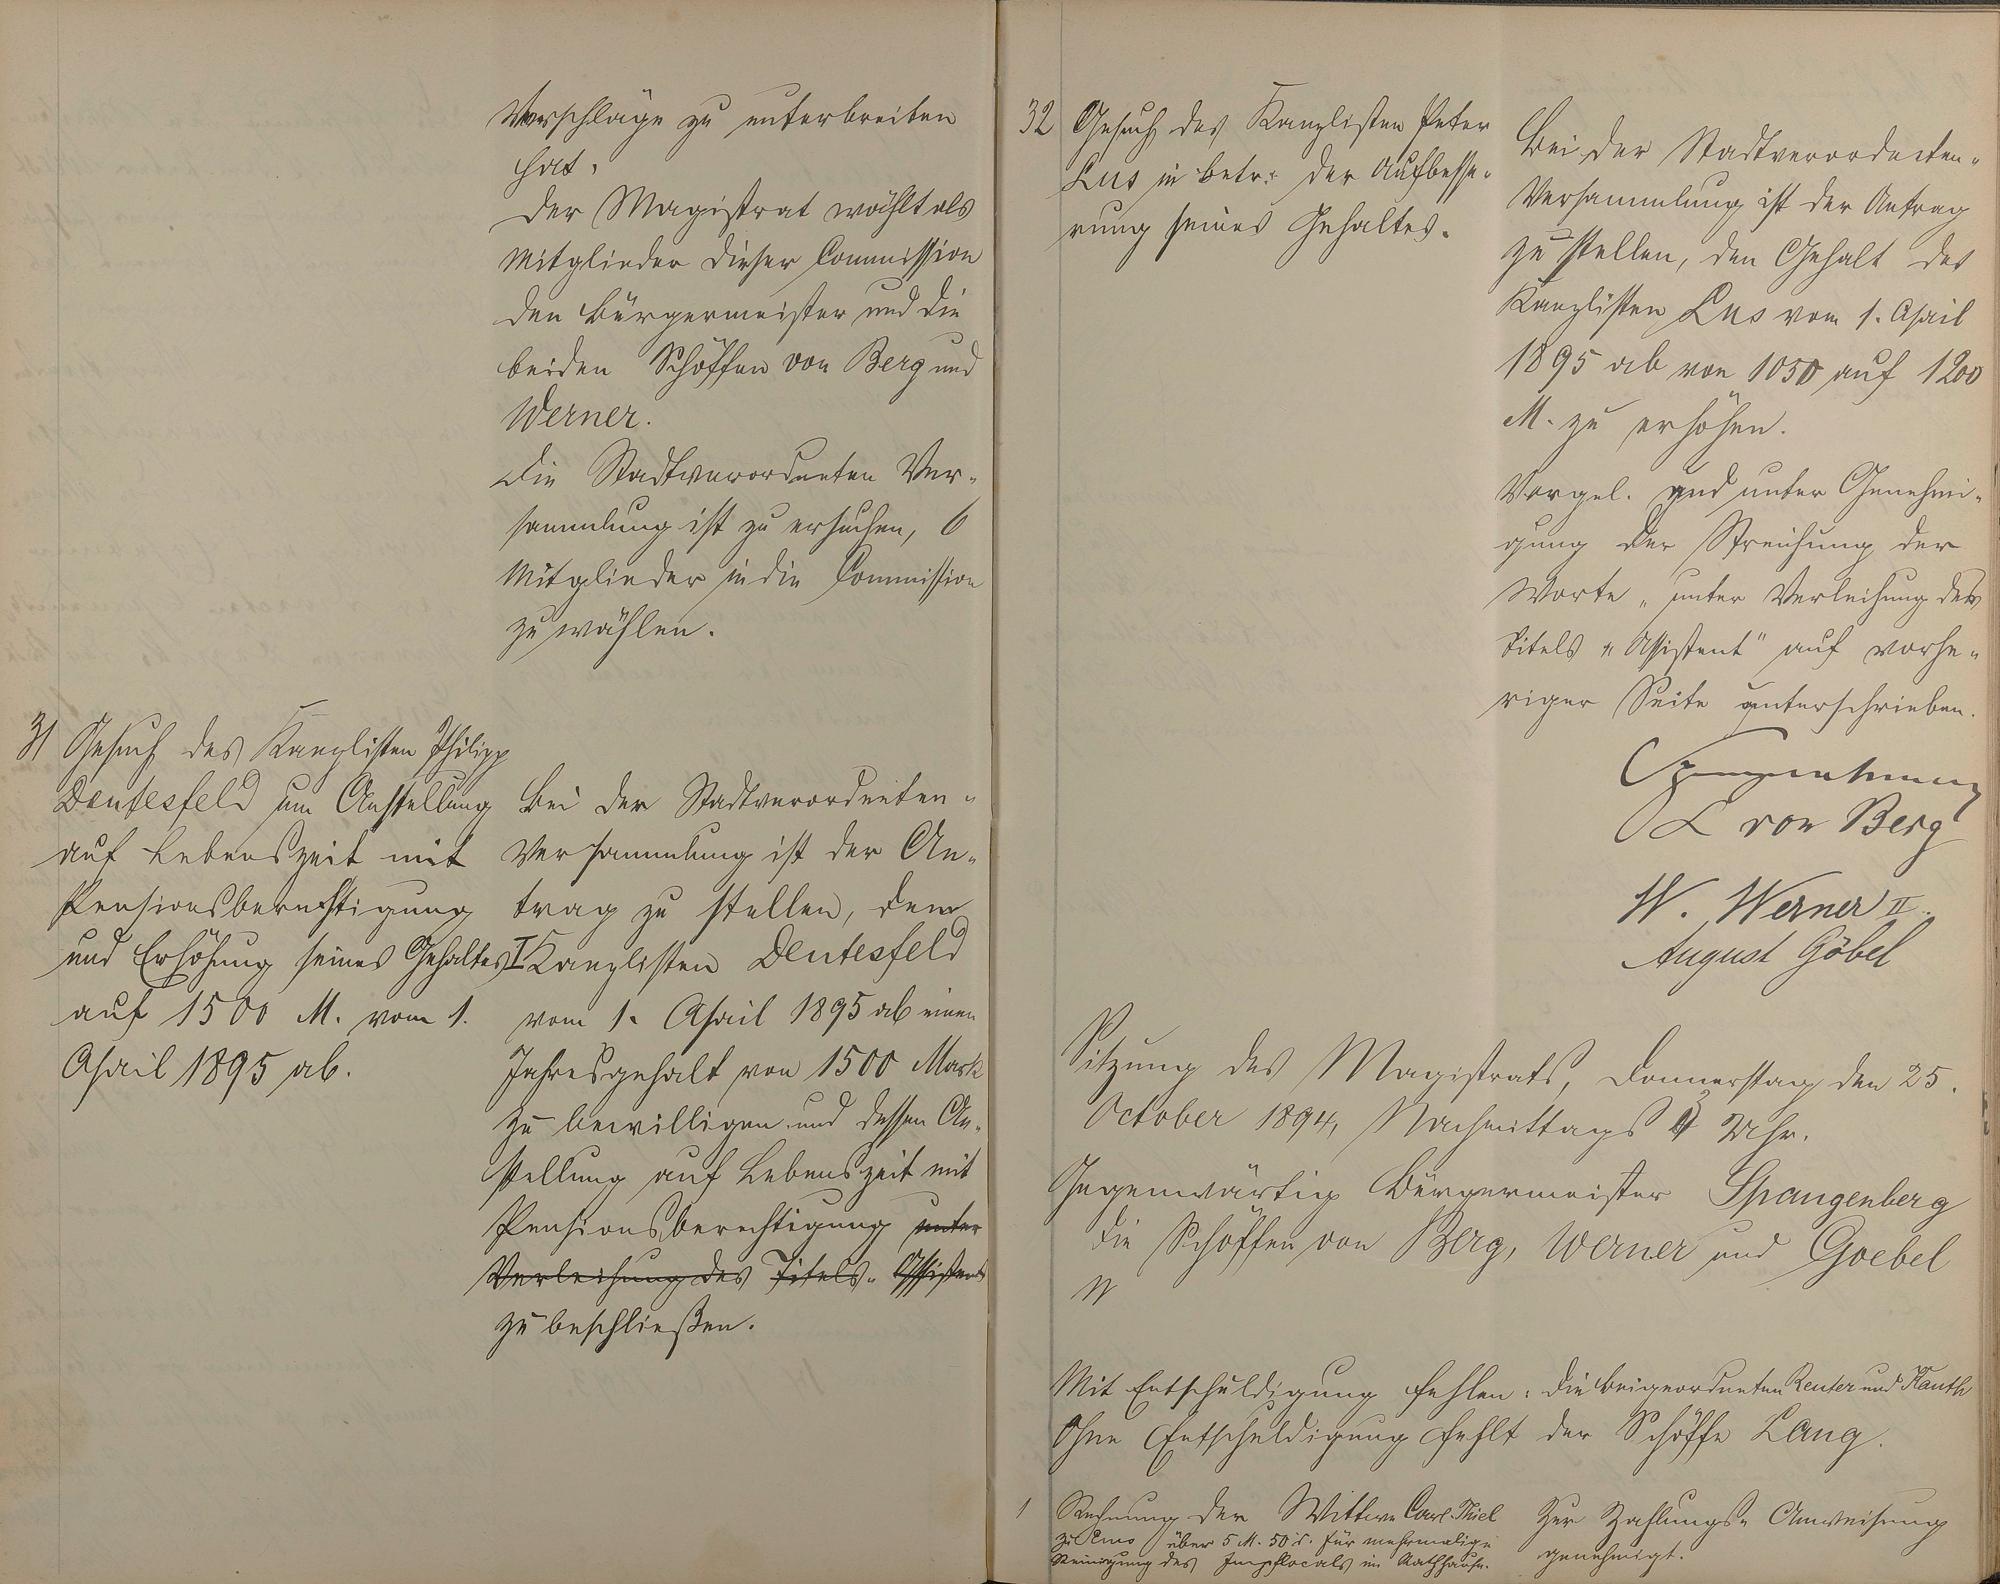 Vorschläge zu unterbreiten
hat.
Der Magistrat wählt als
Mitglieder dieser Commission
den Bürgermeister und die
beiden Schöffen von Berg und
Werner.
Die Stadtverordneten Ver-
sammlung ist zu ersuchen, 6
Mitglieder in die Commission
zu wählen.
31 Gesuch des Kanzlisten Philipp
Deutesfeld um Anstellung
auf Lebenszeit mit
Pensionsberechtigung
und Erhöhung seines Gehaltes
auf 1500 M. vom 1.
April 1895 ab.
Bei der Stadtverordneten-
Versammlung ist der An-
trag zu stellen, dem
I Kanzlisten Deutesfeld
vom 1. April 1895 ab einen
Jahresgehalt von 1500 Mark
zu bewilligen und dessen An-
stellung auf Lebenszeit mit
Pensionsberechtigung unter
Verleihung des Titels „Assistent
zu beschließen.
32 Gesuch des Kanzlisten Peter
Lus in betr: der Aufbesse-
rung seines Gehaltes.
Bei der Stadtverordneten-
Versammlung ist der Antrag
zu stellen, den Gehalt des
Kanzlisten Lus vom 1. April
1895 ab von 1050 auf 1200
M. zu erhöhen.
Vorgel. und unter Genehmi-
gung der Streichung der
Worte „unter Verleihung des
Titels „Assistent" auf vorhe-
riger Seite unterschrieben.
Spangenberg
L von Berg
W. Werner II.
August Göbel
Sitzung des Magistrats, Donnerstag den 25.
October 1894, Nachmittags Uhr.
Gegenwärtig Bürgermeister Spangenberg
die Schöffen von Berg, Werner und Goebel
Mit Entschuldigung fehlen: die Beigeordneten Reuter und Kauth
Ohne Entschuldigung fehlt der Schöffe Lang.
1 Rechnung der Wittwe Carl Thiel
zu Ems über 5 M. 50 d. für mehrmalige
Reinigung des Impflocals im Rathhause.
Zur Zahlungs-Anweisung
genehmigt.